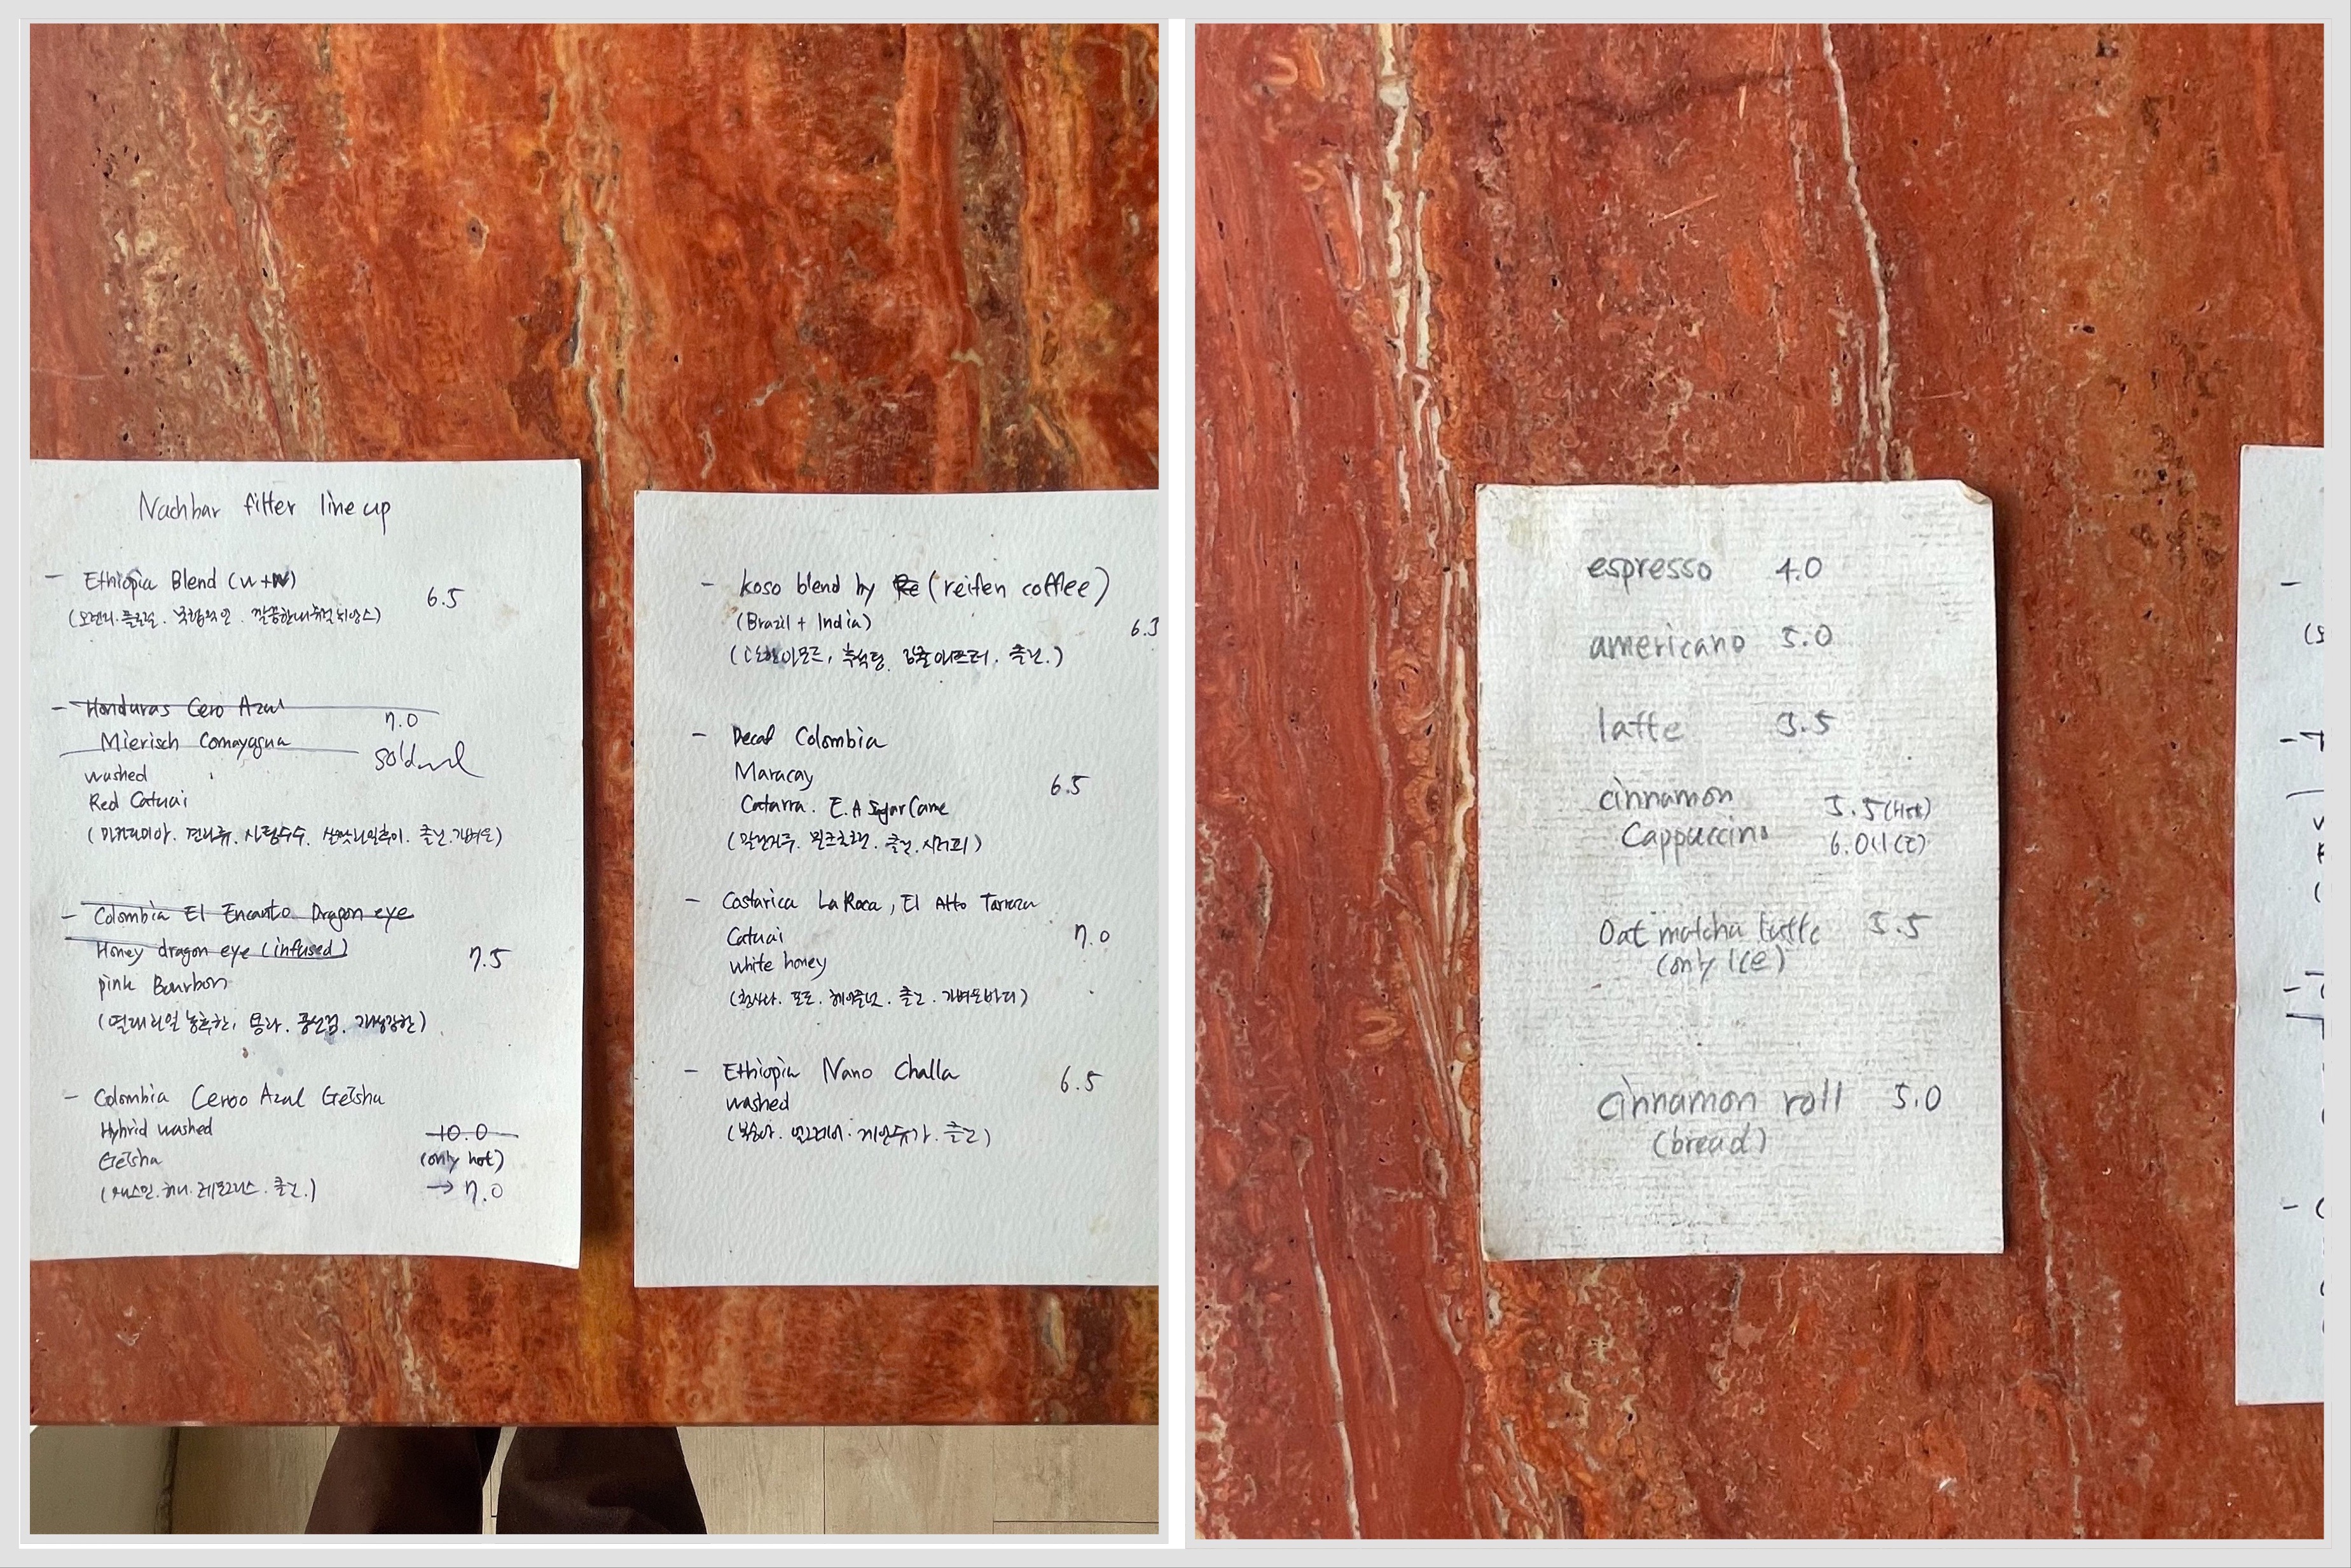 Nachbar filter line up
- Ethiopia Blend (w+N)
6.5
(오렌지. 플로럴. 복합적인. 깔끔한
- Honduras Cero Azul
7.0
Mierisch Comayagua
soldout
washed
Red Catuai
(마카다미아. 건자두. 사탕수수. 클린. 가벼운)
- Colombia El Encanto Dragon eye
Honey dragon eye (infused)
7.5
pink Bourbon
(열대과일 농축한, 용과. 풍선껌. 개성강한)
- Colombia Ceroo Azul Geisha
Hybrid washed
10.0
Geisha
(only hot)
(쟈스민. 허니. 레몬그라스. 클린.)
→ 7.0
- koso blend by Re (reifen coffee)
(Brazil + India)
6.3
(다크 클린.)
- Decaf Colombia
Maracay
6.5
Catarra. E.A Sugar Came
(밀크초코렛. 클린. 시러피)
- Costarica La Roca, El Alto Tarrazu
Catuai
7.0
white honey
(청사과. 포도. 헤이즐넛. 클린. 가벼운바디)
- Ethiopia Nano Challa
6.5
washed
(복숭아. 얼그레이. 클린)
espresso 4.0
americano 5.0
latte 5.5
cinnamon
5.5 (Hot)
Cappuccino
6.0 (ICE)
Oat matcha latte 5.5
(only ICE)
cinnamon roll 5.0
(bread)